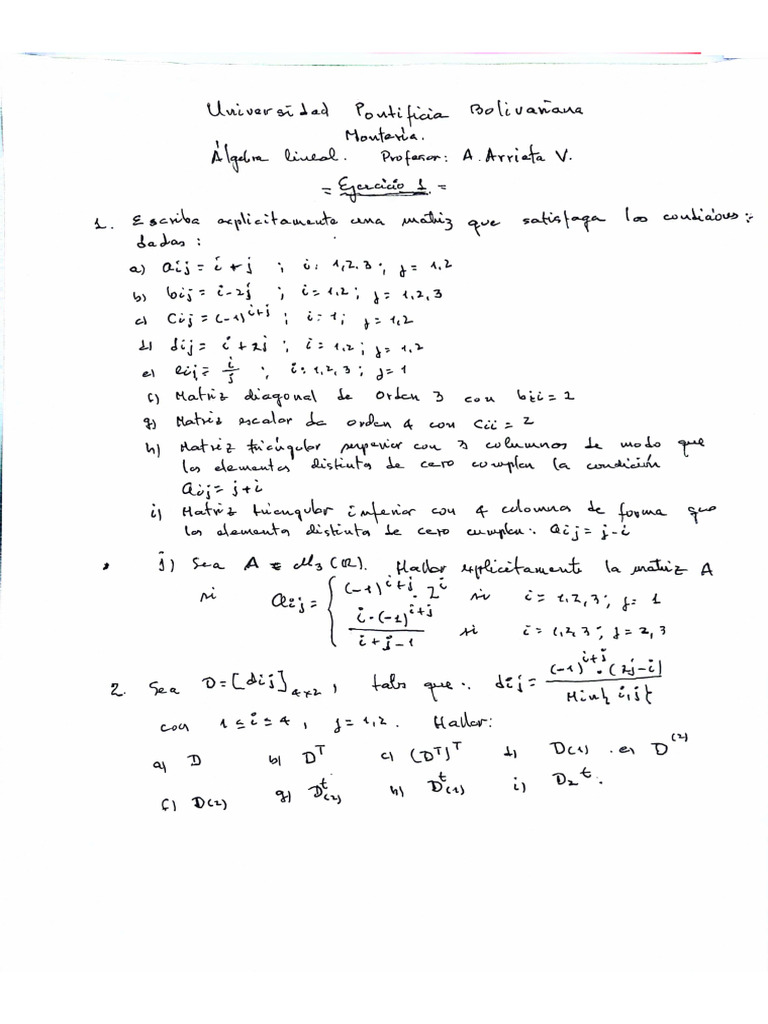 Universidad Pontificia Bolivariana
Montería.
Álgebra lineal. Profesor: A. Arrieta V.
= Ejercicio 1. =
1. Escriba explicitamente una matriz que satisfaga las condiciones
dadas:
a) aij = i + j ; i = 1,2,3 ; j = 1,2
b) bij = i - 2j ; i = 1,2 ; j = 1,2,3
c) Cij = (-1)^{i+j} ; i = 1 ; j = 1,2
d) dij = i + 2j ; i = 1,2 ; j = 1,2
e) eij = i/j ; i = 1,2,3 ; j = 1
f) Matriz diagonal de orden 3 con bii = 2
g) Matriz escalar de orden 4 con Cii = 2
h) Matriz triángular superior con 3 columnas de modo que
los elementos distinto de cero cumplan la condición
aij = j + i
i) Matriz triangular inferior con 4 columnas de forma que
los elemento distinto de cero cumplan: aij = j - i
j) Sea A ∈ M3(R). Hallar explicitamente la matriz A
si aij = { (-1)^{i+j} · 2^i si i = 1,2,3 ; j = 1
i·(-1)^{i+j} / i+j-1 si i = 1,2,3 ; j = 2,3
2. Sea D = [dij]4x2, tales que: dij = (-1)^{i+j} · (2j-i) / Min{i,j}
con 1 ≤ i ≤ 4, j = 1,2. Hallar:
a) D b) D^T c) (D^T)^T d) D(1) . e) D^(2)
f) D(2) g) D^t(2) h) D^t(1) i) D2^t.